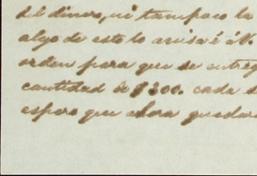 del dinero, ni tampoco la
algo de esto lo avisaré á V.
orden para que se entreg
cantidad de $300. cada
espero que ahora quedará